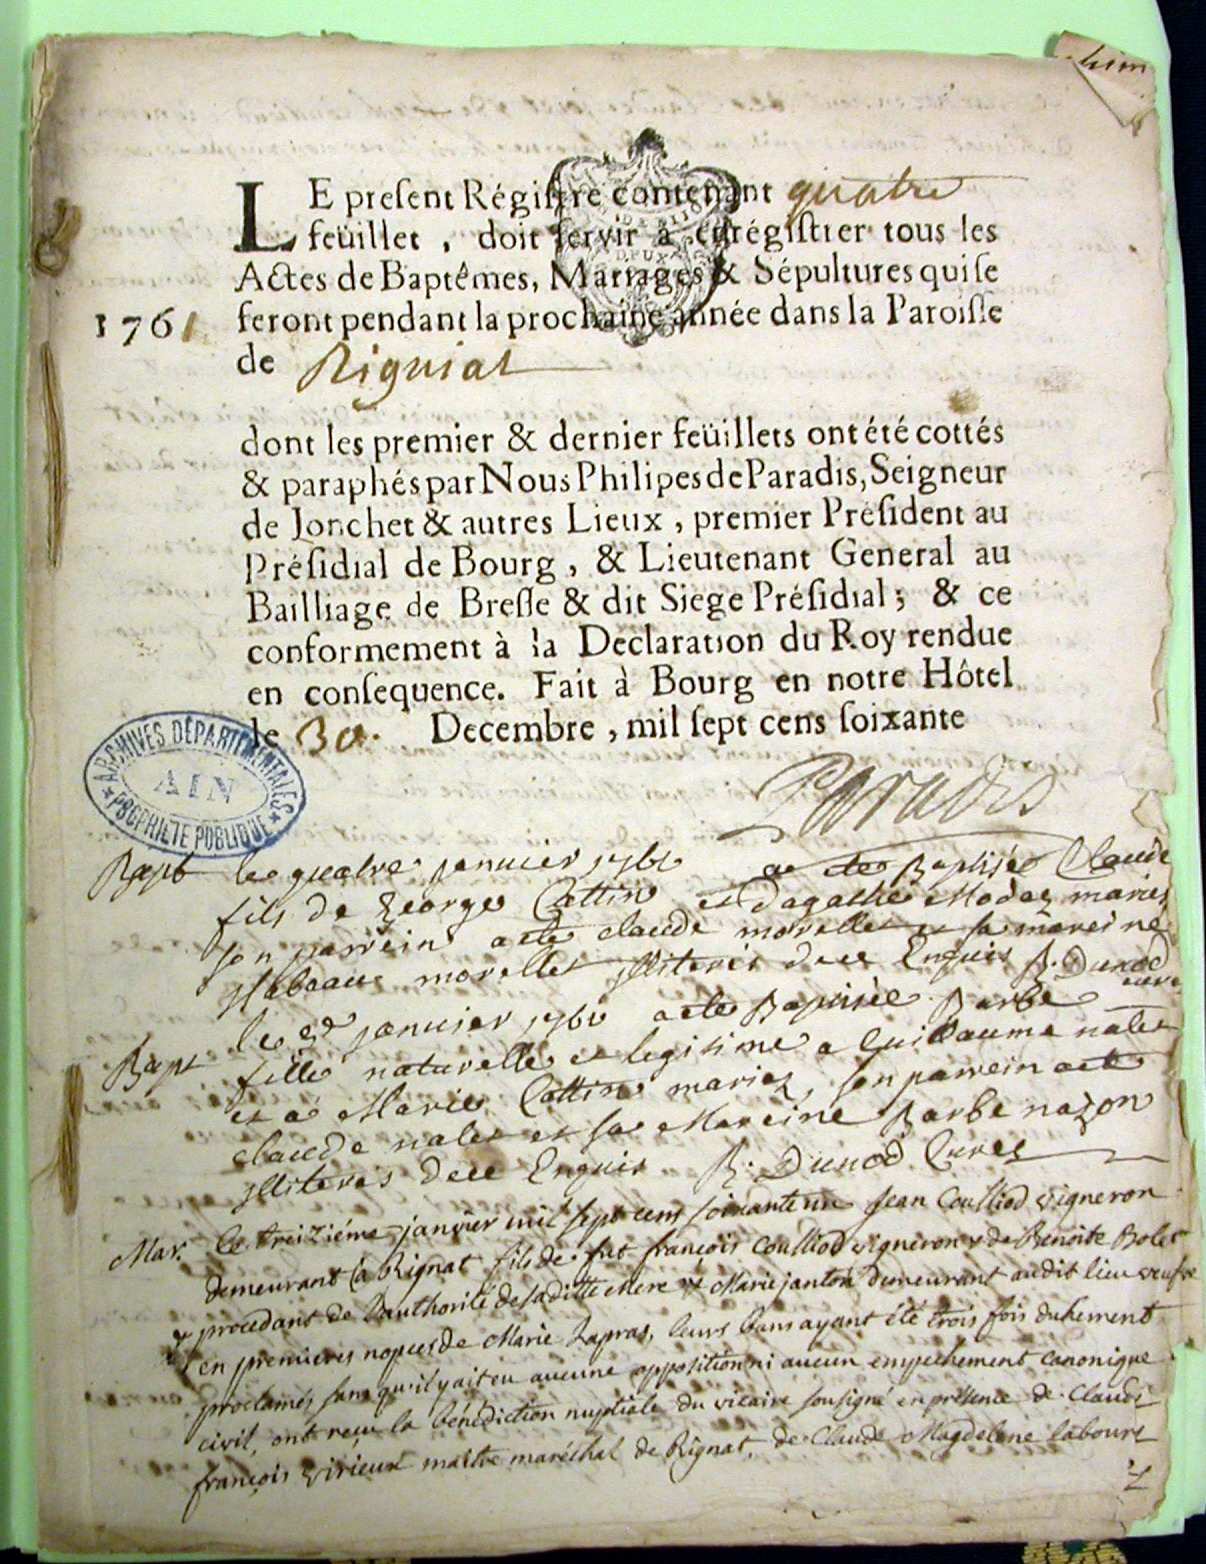 LE preſent Régiſtre contenant quatre
feüillet, doit ſervir à enrégiſtrer tous les
Actes de Baptêmes, Mariages & Sépultures qui ſe
1761 feront pendant la prochaine année dans la Paroiſſe
de Rigniat
dont les premier & dernier feüillets ont été cottés
& paraphés par Nous Philipes de Paradis, Seigneur
de Jonchet & autres Lieux, premier Préſident au
Préſidial de Bourg, & Lieutenant General au
Bailliage de Breſſe & dit Siege Préſidial; & ce
conformement à la Declaration du Roy rendue
en conſequence. Fait à Bourg en notre Hôtel
le 30. Decembre, mil ſept cens ſoixante
ARCHIVES DÉPARTEMENTALES
AIN
PROPRIETE PUBLIQUE
Paradis
Bapt le quatre janvier 1761 a ete Baptisée Claude
fils de George Cottin et dagathe mariez
son parrein a ete claude morellet et sa mareine
morellet illiterés de ce Enquis B. Dunod
curé
Bapt le janvier 1761 a ete Baptisée Barbe
fille naturelle et legitime a Guillaume nalet
et a Marie Cottin mariez, son parrein a ete
claude nalet et sa Mareine Barbe nazon
illiterés de ce Enquis B. Dunod Curez
Mar. Le treiziéme janvier mil sept cens soixante un Jean Coulliod vigneron
demeurant à Rignat fils de fut françois Coulliod vigneron & de Benoite Bolet
procedant de l'authorité de sa ditte mere & Marie janton demeurant au dit lieu veufve
en premieres nopces de Marie Lapras, leurs bans ayant été trois fois duhement
proclamés sans qu'il y ait eu aucune opposition ni aucun empechement canonique
civil, ont reçu la bénédiction nuptiale du vicaire sousigné en présence de Claude
françois virieux maitre maréchal de Rignat, de Claude Magdelene laboure